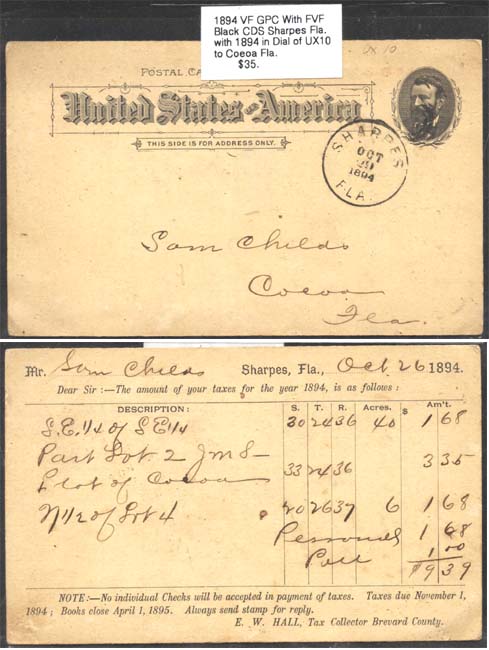 1894 VF GPC With FVF
Black CDS Sharpes Fla.
with 1894 in Dial of UX10
to Coeoa Fla.
$35.
UX 10
POSTAL CA
United States of America
THIS SIDE IS FOR ADDRESS ONLY.
SHARPES
OCT
1894
FLA.
Sam Childs
Cocoa
Fla.
Mr. Sam Childs Sharpes, Fla., Oct. 26 1894.
Dear Sir :—The amount of your taxes for the year 1894, is as follows :
DESCRIPTION: S. T. R. Acres. $ Am't.
S.E. 1/4 of S E 1/4 30 24 36 40 1 68
Part Lot 2 J M S— 33 24 36 3 35
Plat of Cocoa
N 1/2 of Lot 4 20 26 37 6 1 68
Personal 1 68
Poll 1 00
$9 39
NOTE:—No individual Checks will be accepted in payment of taxes. Taxes due November 1,
1894 ; Books close April 1, 1895. Always send stamp for reply.
E. W. HALL, Tax Collector Brevard County.